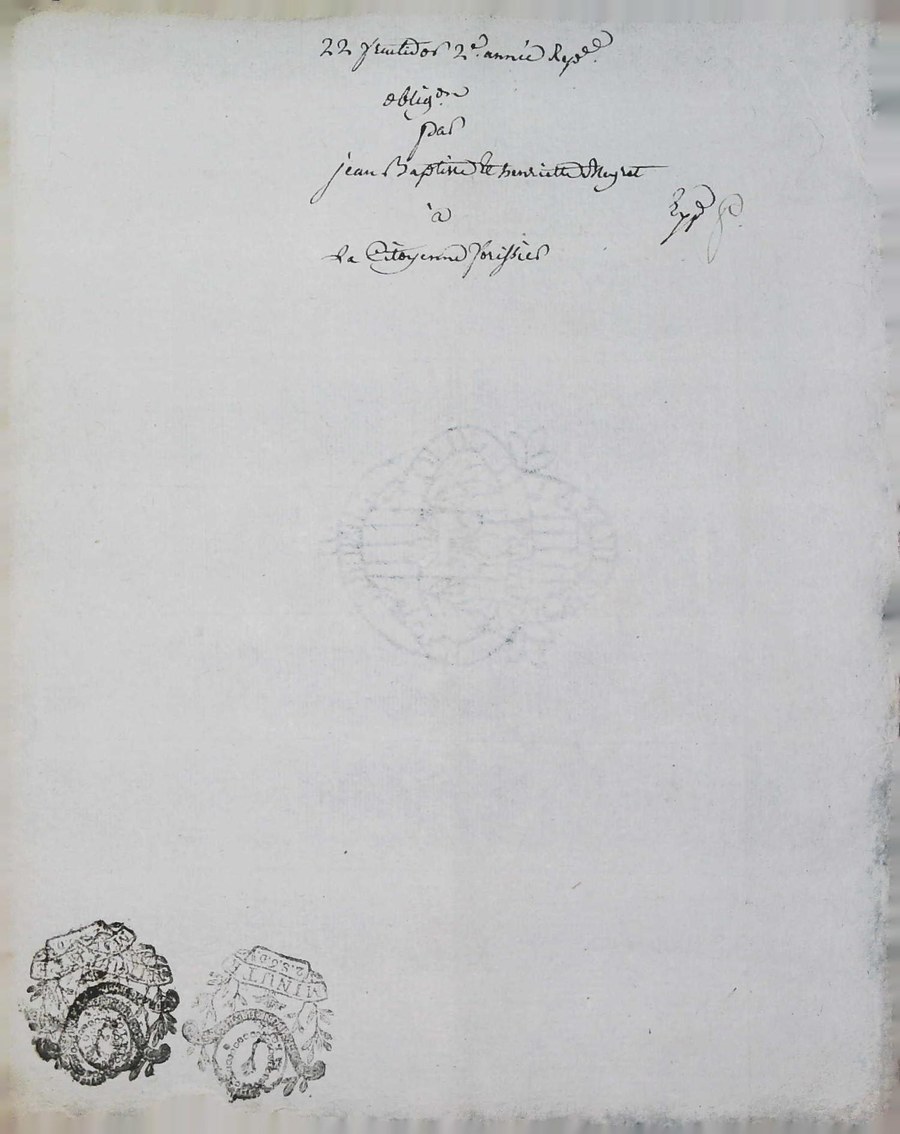 22 fructidor 2e. année Repe.
obligon
par
jean Baptiste et henriette Meyret
à
La Citoyenne
Expe
2.S.6.D
MINUT